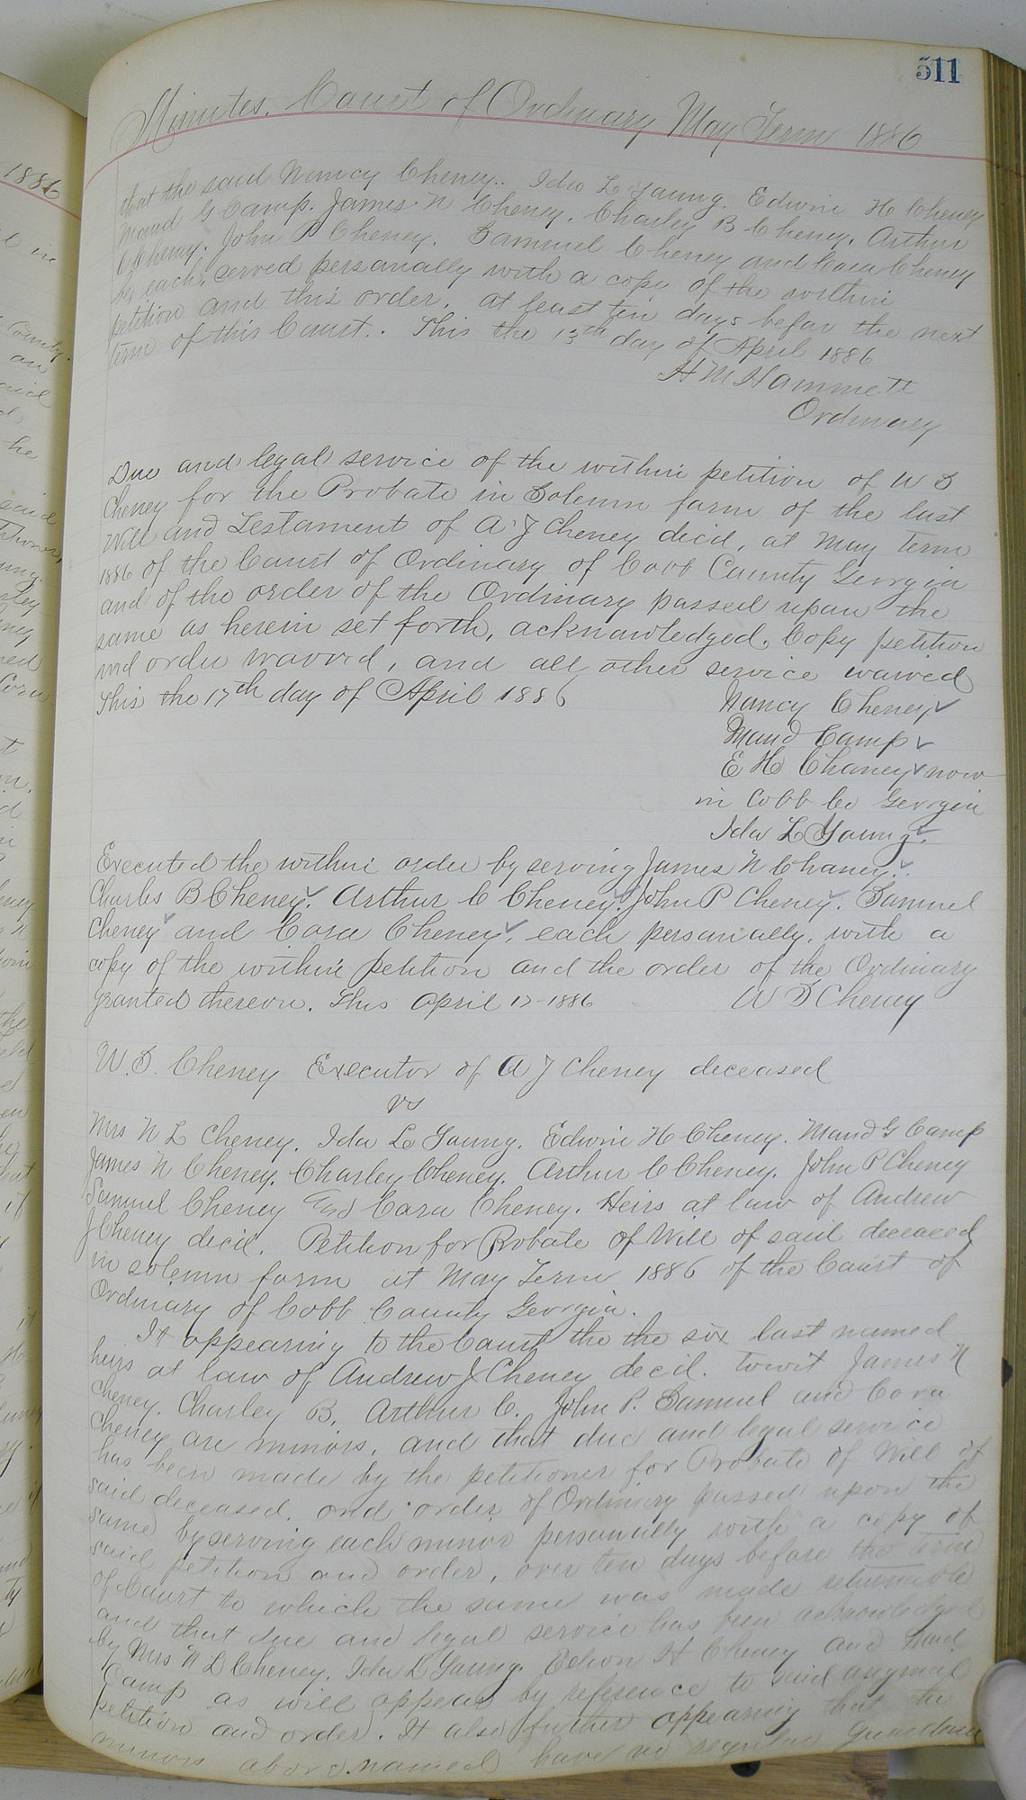 511
Minutes, Court of Ordinary May Term 1886
that the said Nancy Cheney. Ida L Young. Edwin H Cheney
Maud G Camp. James N Cheney. Charley B Cheney. Arthur
C Cheney. John P Cheney. Samuel Cheney and Cora Cheney
be each served personally with a copy of the within
petition and this order, at least ten days before the next
term of this Court. This the 13th day of April 1886
H M Hammett
Ordinary
Due and legal service of the within petition of W S
Cheney for the Probate in Solemn form of the last
Will and Testament of A J Cheney decd, at May term
1886 of the Court of Ordinary of Cobb County Georgia
and of the order of the Ordinary passed upon the
same as herein set forth, acknowledged. Copy petition
and order waived, and all other service waived
This the 17th day of April 1886
Nancy Cheney
Maud Camp
E H Chaney now
in Cobb Co Georgia
Ida L Young
Executed the within order by serving James N Chaney.
Charles B Cheney. Arthur C Cheney. John P Cheney. Samuel
Cheney and Cora Cheney. each personally. with a
copy of the within petition and the order of the Ordinary
granted thereon. This April 17-1886 W S Cheney
W. S. Cheney Executor of A J Cheney deceased
vs
Mrs N L Cheney. Ida L Young. Edwin H Cheney. Maud G Camp
James N Cheney. Charley Cheney. Arthur C Cheney. John P Cheney
Samuel Cheney and Cora Cheney. Heirs at law of Andrew
J Cheney decd. Petition for Probate of Will of said deceased
in solemn form at May Term 1886 of the Court of
Ordinary of Cobb County Georgia.
It appearing to the Court the the six last named
heirs at law of Andrew J Cheney decd. towit James N
Cheney. Charley B. Arthur C. John P. Samuel and Cora
Cheney are minors, and that due and legal service
has been made by the petitioner for Probate of Will of
said deceased. and order of Ordinary passed upon the
same by serving each minor personally with a copy of
said petition and order, over ten days before the term
of Court to which the same was made returnable
and that due and legal service has been acknowledged
by Mrs N L Cheney. Ida L Young. Edwin H Cheney and Maud
Camp as will appear by reference to said original
petition and order. It also further appearing that the
minors above named have no regular Guardian